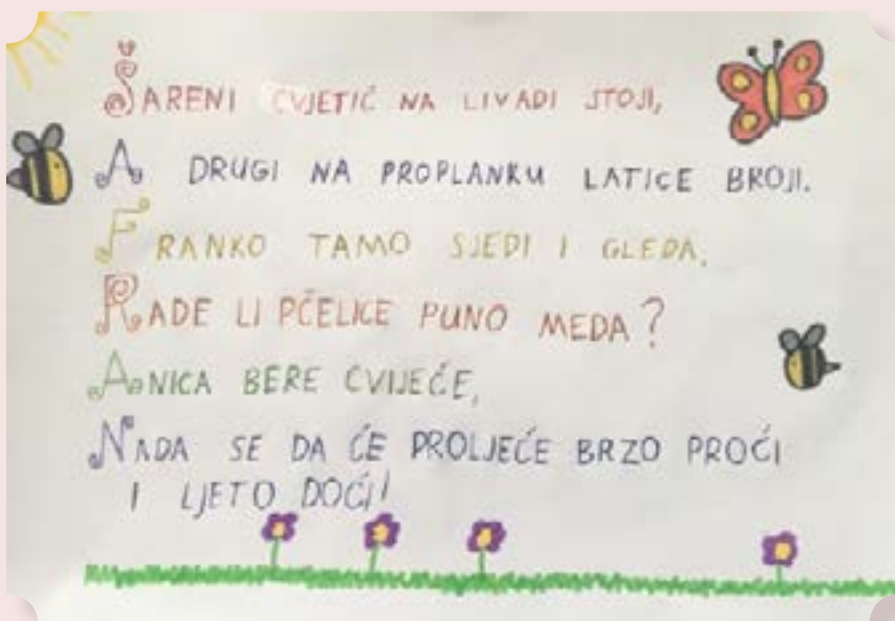 ŠARENI CVJETIĆ NA LIVADI STOJI,
A DRUGI NA PROPLANKU LATICE BROJI.
FRANKO TAMO SJEDI I GLEDA,
RADE LI PČELICE PUNO MEDA?
ANICA BERE CVIJEĆE,
NADA SE DA ĆE PROLJEĆE BRZO PROĆI
I LJETO DOĆI!